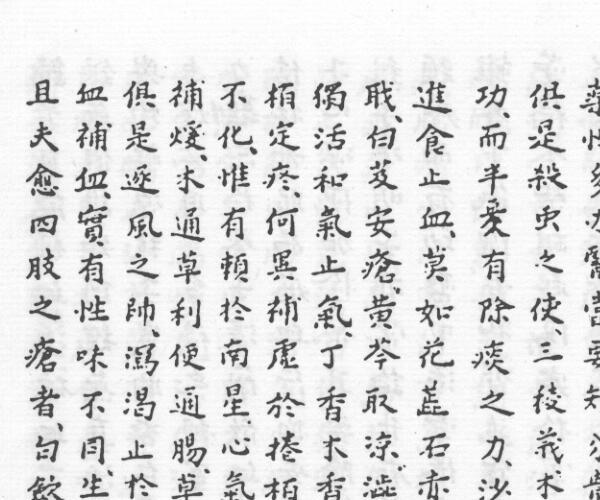 藥性多方醫當要知
俱是殺虫之使、三稜莪术
功、而半夏有除痰之力、沙
進食止血、莫如花蕋石赤
戢、白芨安瘡、黃芩取涼、澁
獨活和氣止氣、丁香木香
栢定疼、何異補虛於捲栢
不化、惟有賴於南星、心氣
補煖、木通草利便通腸、草
俱是逐風之帥、瀉渴止於
血補血、實有性味不同、生
且夫愈四肢之瘡者、白飲